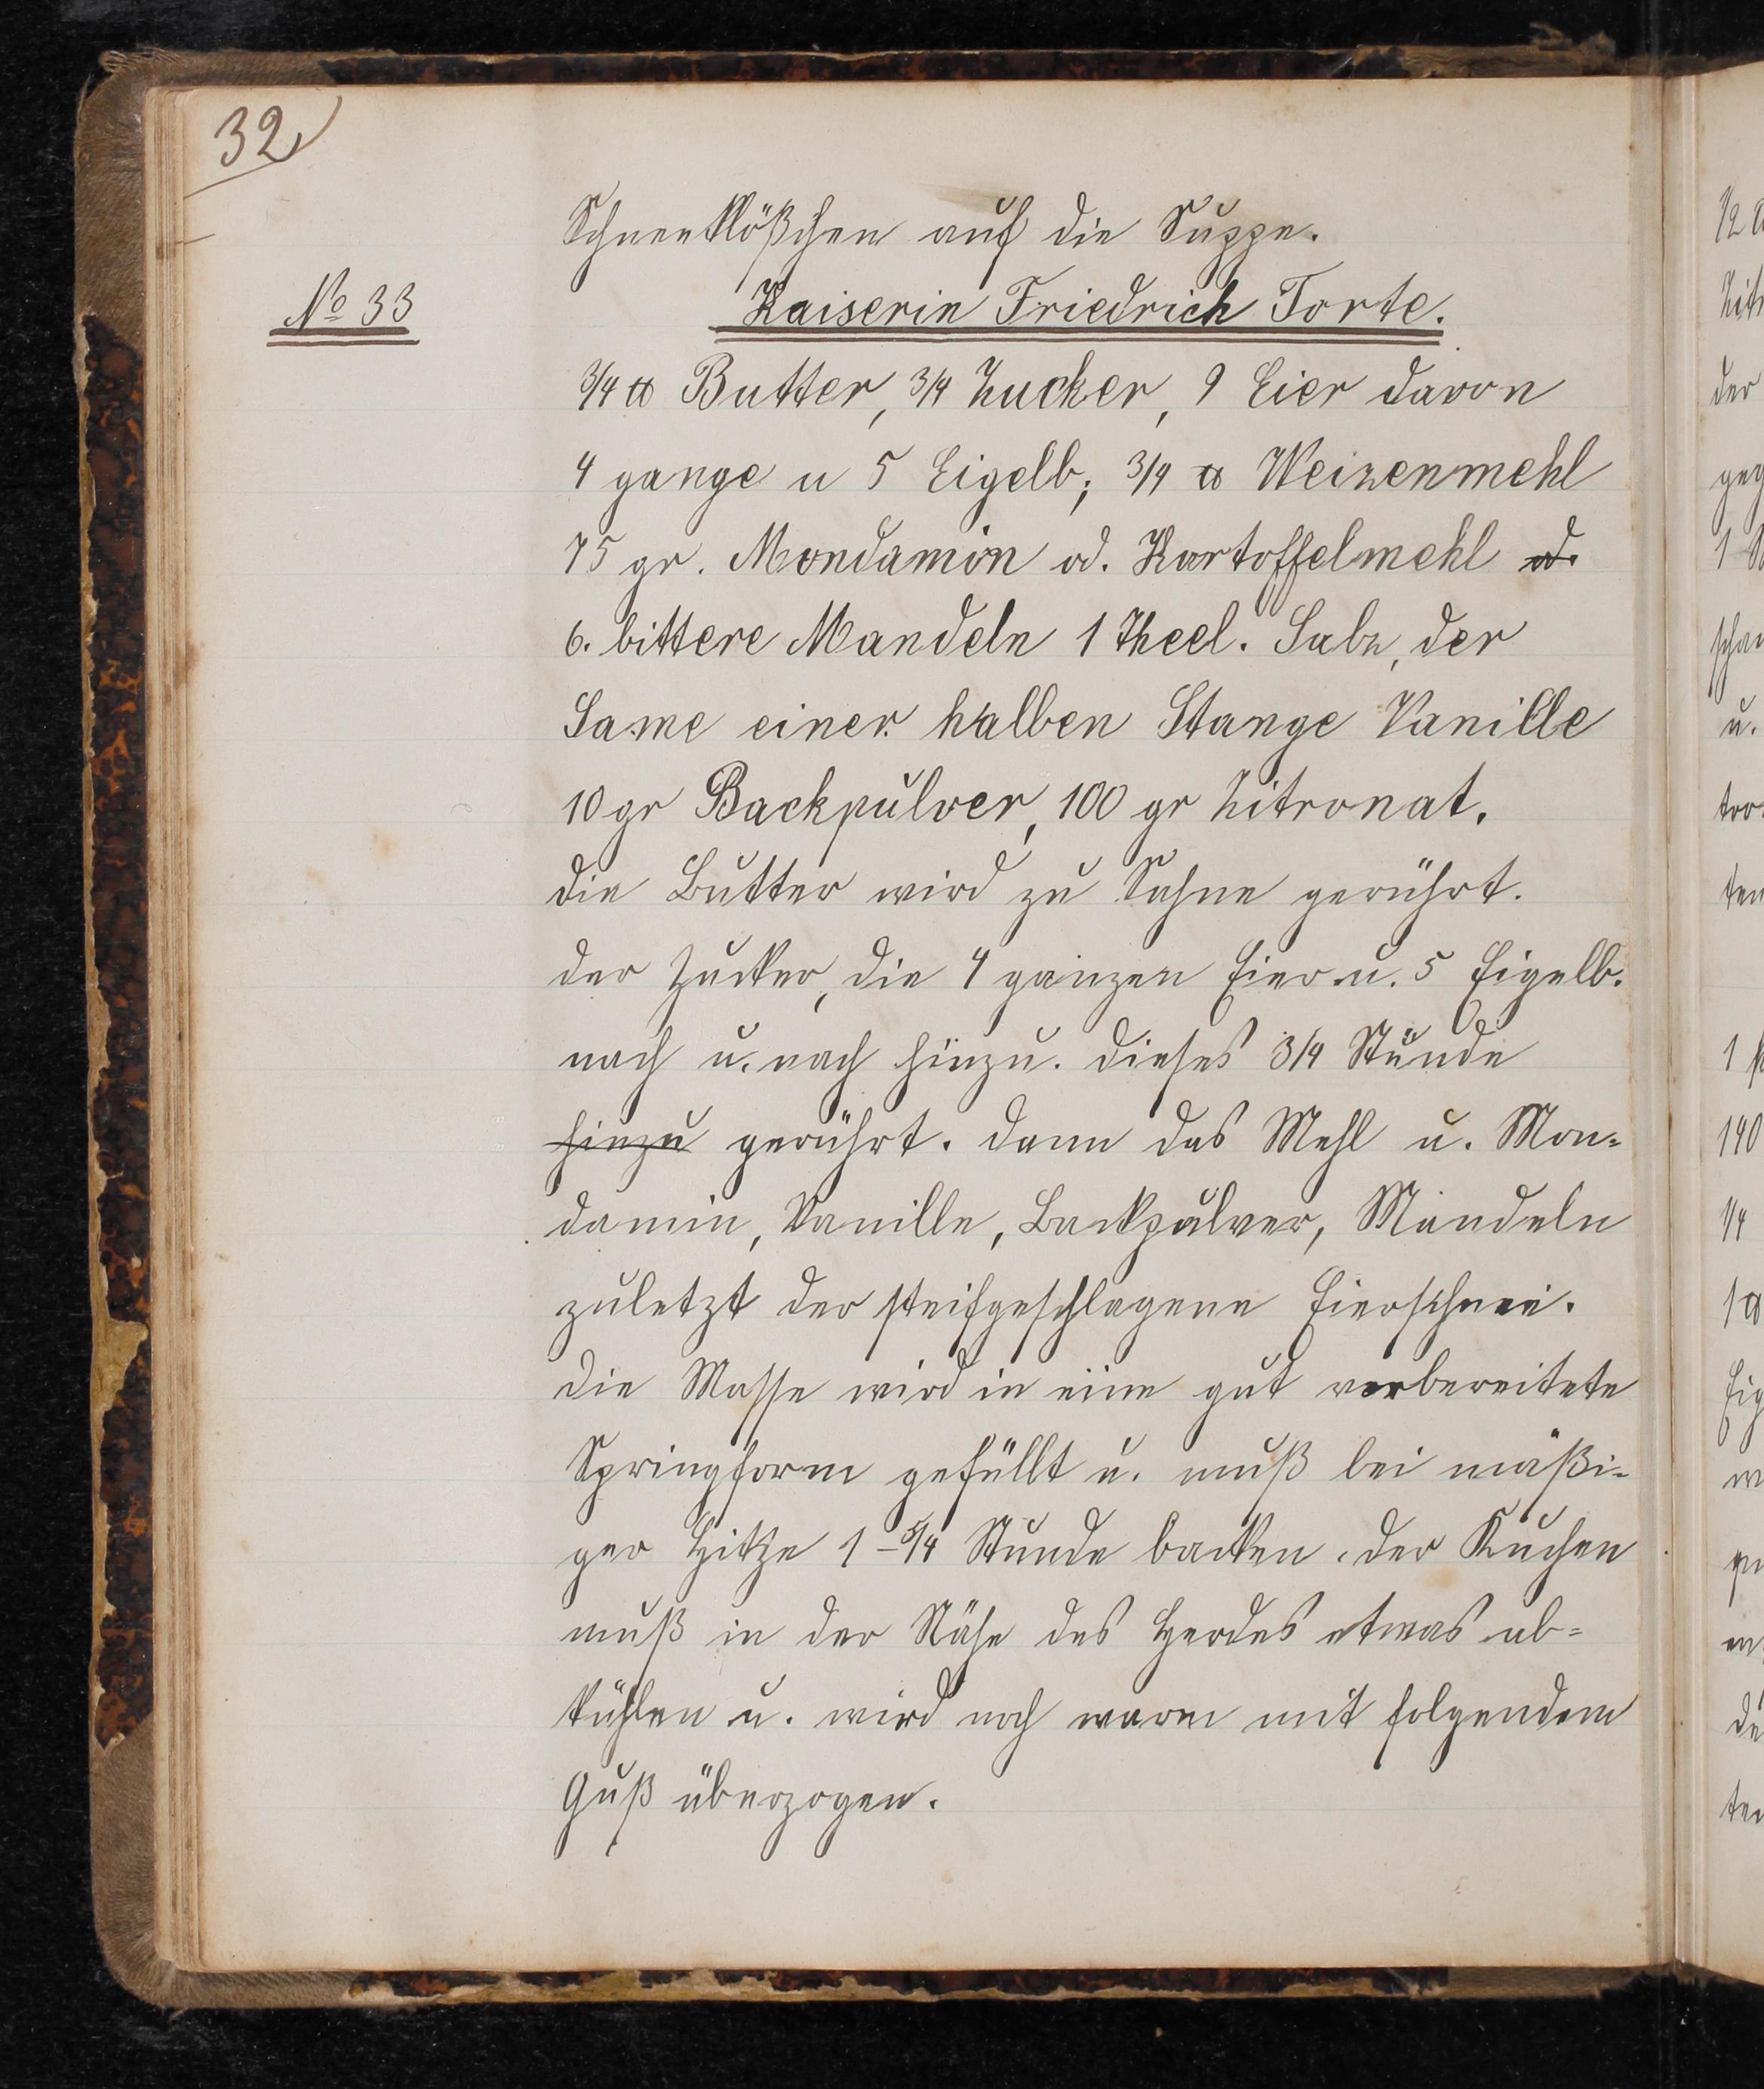 32
Schneeklößchen auf die Suppe.
No 33
Kaiserin Friedrich Torte.
3/4 ℔ Butter, 3/4 Zucker, 9 Eier davon
4 gange u 5 Eigelb; 3/4 ℔ Weizenmehl
75 gr. Mondamin od. Kartoffelmehl od.
6. bittere Mandeln 1 Theel. Salz, der
Same einer halben Stange Vanille
10 gr Backpulver, 100 gr Zitronat.
die Butter wird zu Sahne gerührt.
der Zucker, die 4 ganzen Eier u. 5 Eigelb.
nach u. nach hinzu. dieses 3/4 Stunde
hinzu gerührt. dann das Mehl u. Mon=
damin, Vanille, Backpulver, Mandeln
zuletzt der steifgeschlagene Eierschnee.
die Masse wird in eine gut vorbereitete
Springform gefüllt u. muß bei mäßi=
ger Hitze 1 - 5/4 Stunde backen. der Kuchen
muß in der Nähe des Herdes etwas ab=
kühlen u. wird noch warm mit folgendem
Guß überzogen.
1/2
der
u.
ten
140
1/4
1 ℔